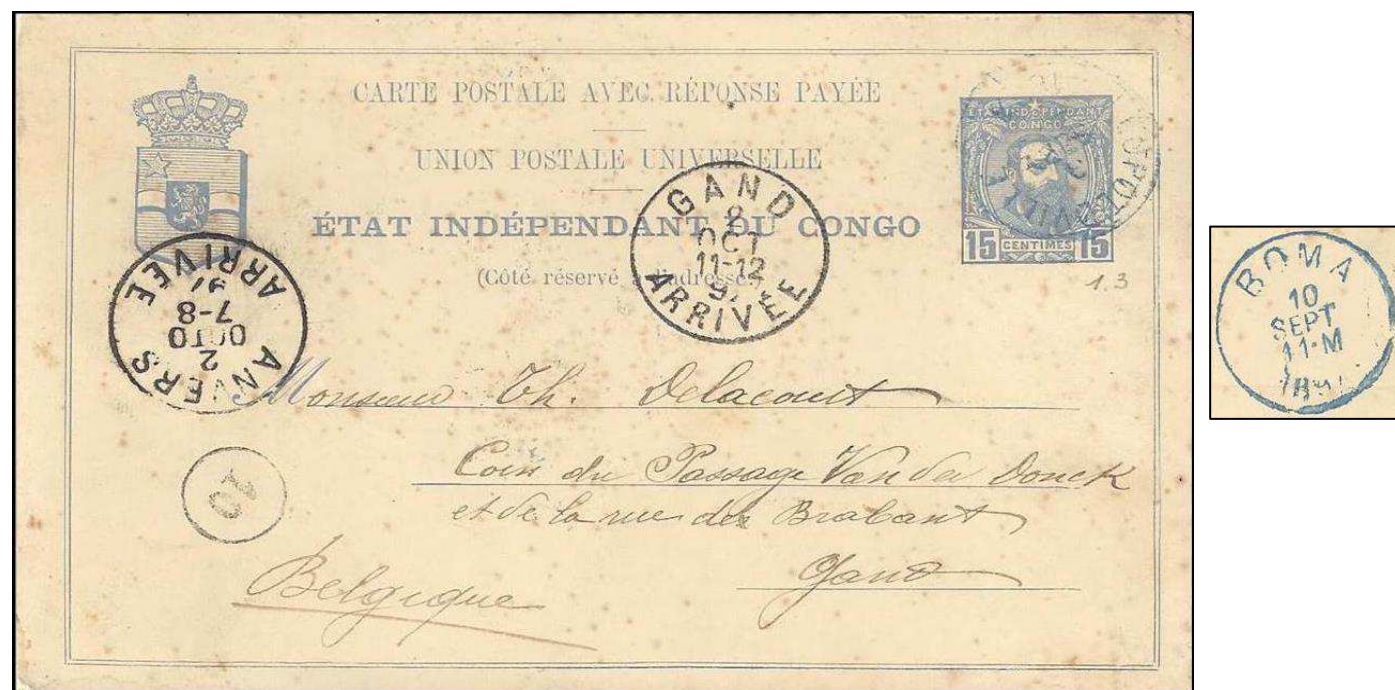 CARTE POSTALE AVEC RÉPONSE PAYÉE
UNION POSTALE UNIVERSELLE
ÉTAT INDÉPENDANT DU CONGO
(Côté réservé à l'adresse.)
ÉTAT INDÉPENDANT
CONGO
15 CENTIMES 15
1.3
GAND
OCT
11-12
ARRIVÉE
ANVERS
2
OCTO
7-8
ARRIVÉE
10
Monsieur Th. Delacourt
Coin du Passage Van der Donck
et de la rue des Brabant
Gand
Belgique
BOMA
10
SEPT
11·M